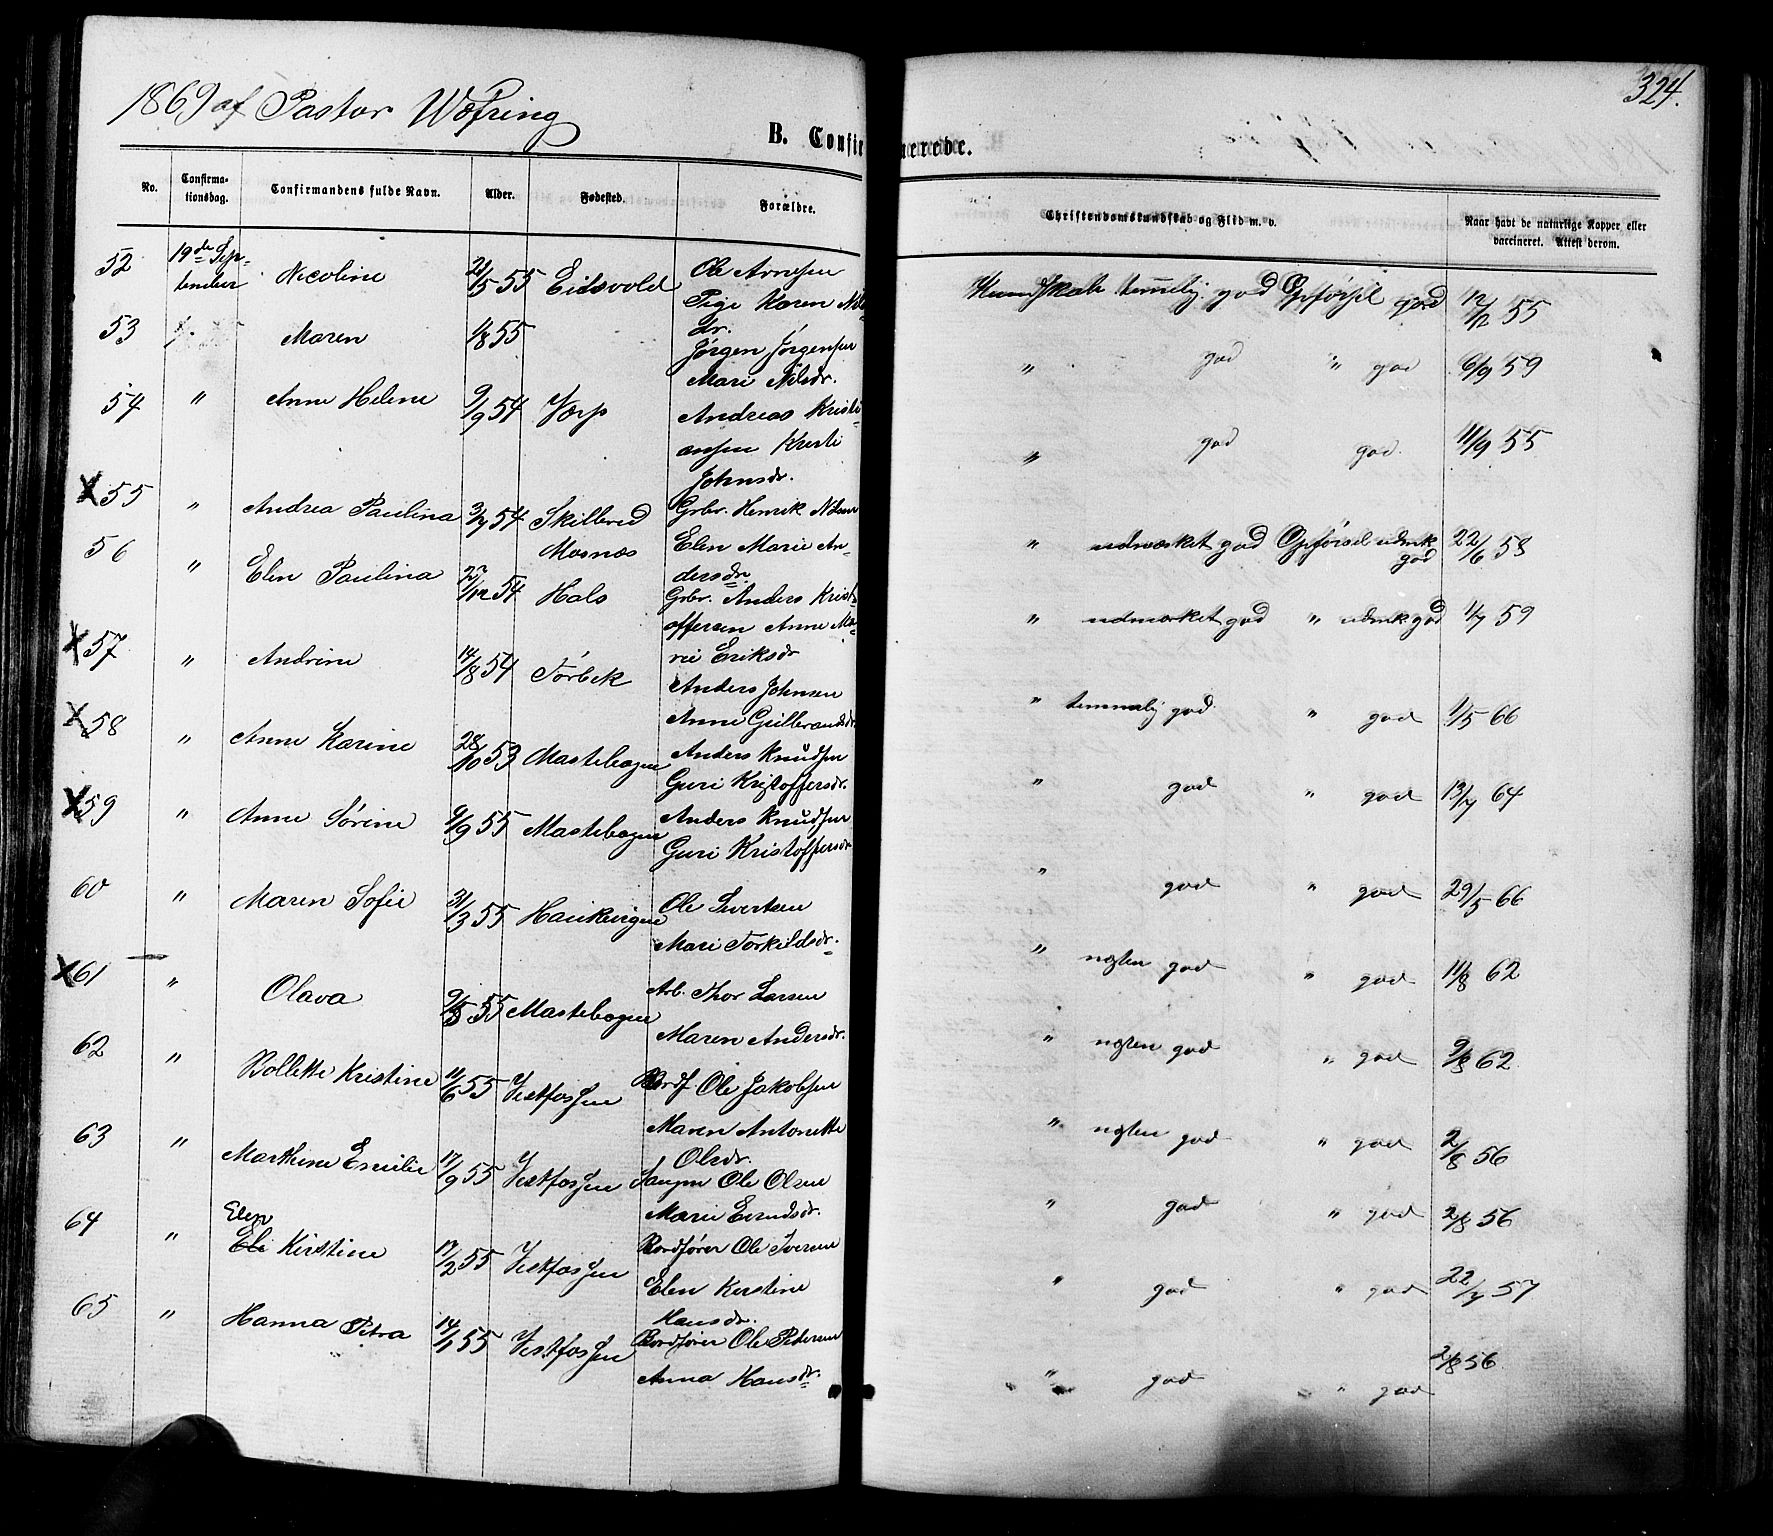 324.
1869 af Pastor Wefring
B. Confirmerede.
No. Confirma-tionsdag. Confirmandens fulde Navn. Alder. Fødested. Forældre. Christendomskundskab og Flid m. v. Naar havt de naturlige Kopper eller vaccineret. Attest derom.
52 19de Sep- Nicoline 21/5 55 Eidsvold Ole Arnesen Kundskab temmelig god Opførsel god 12/12 55
tember Pige Karen Nils-
dr.
53 Maren 1/8 55 Jørgen Jørgensen " god " god 6/9 59
Mari Nilsdr.
54 " Anne Helene 9/9 54 Verp Andreas Kristi- " god god. 11/9 55
ansen Kirsti
Johnsdr.
X 55 " Andrea Paulina 3/7 54 Skillerud Grbr. Henrik Nilsen " udmærket god Opførsel udmrk god 22/6 58
Mosnæs Elen Marie An-
dersdr
56 " Elen Paulina 27/12 54 Hals Grbr. Anders Krist- " udmærket god " udmrk god 1/7 59
offersen Anne Ma-
rie Eriksdr
X 57 " Andrine 14/8 54 Tørbek Anders Johnsen " temmelig god " god 1/5 66
Anne Gulbrandsdr
X 58 " Anne Karine 28/10 53 Mastebogen Anders Knudsen " god " god 13/7 64
Guri Kristoffersdr.
X 59 " Anne Sørine 9/9 55 Mastebogen Anders Knudsen " god " god 29/5 66
Guri Kristoffersdr
60 " Maren Sofie 31/3 55 Haukbergene Ole Sivertsen " næsten god " god 11/8 62
Mari Torkildsdr.
X 61 " Olava 9/5 55 Mastebogen Arb. Thor Larsen " næsten god " god 9/8 62
Maren Andersdr.
62 " Bollette Kristine 11/6 55 Vestfossen Bordf Ole Jakobsen " næsten god " god 2/8 56
Maren Antonette
Olsdr.
63 " Marthine Emilie 17/9 55 Vestfossen Saugm Ole Olsen " god " god 2/8 56
Marie Evendsdr.
64 " Elen
Eli Kirstine 17/2 55 Vestfossen Bordfører Ole Iversen " god " god 22/7 57
Elen Kerstine
Hansdr.
65 " Hanna Petra 14/1 55 Vestfossen Bordfører Ole Pedersen " god " god 2/8 56.
Anna Hansdr.